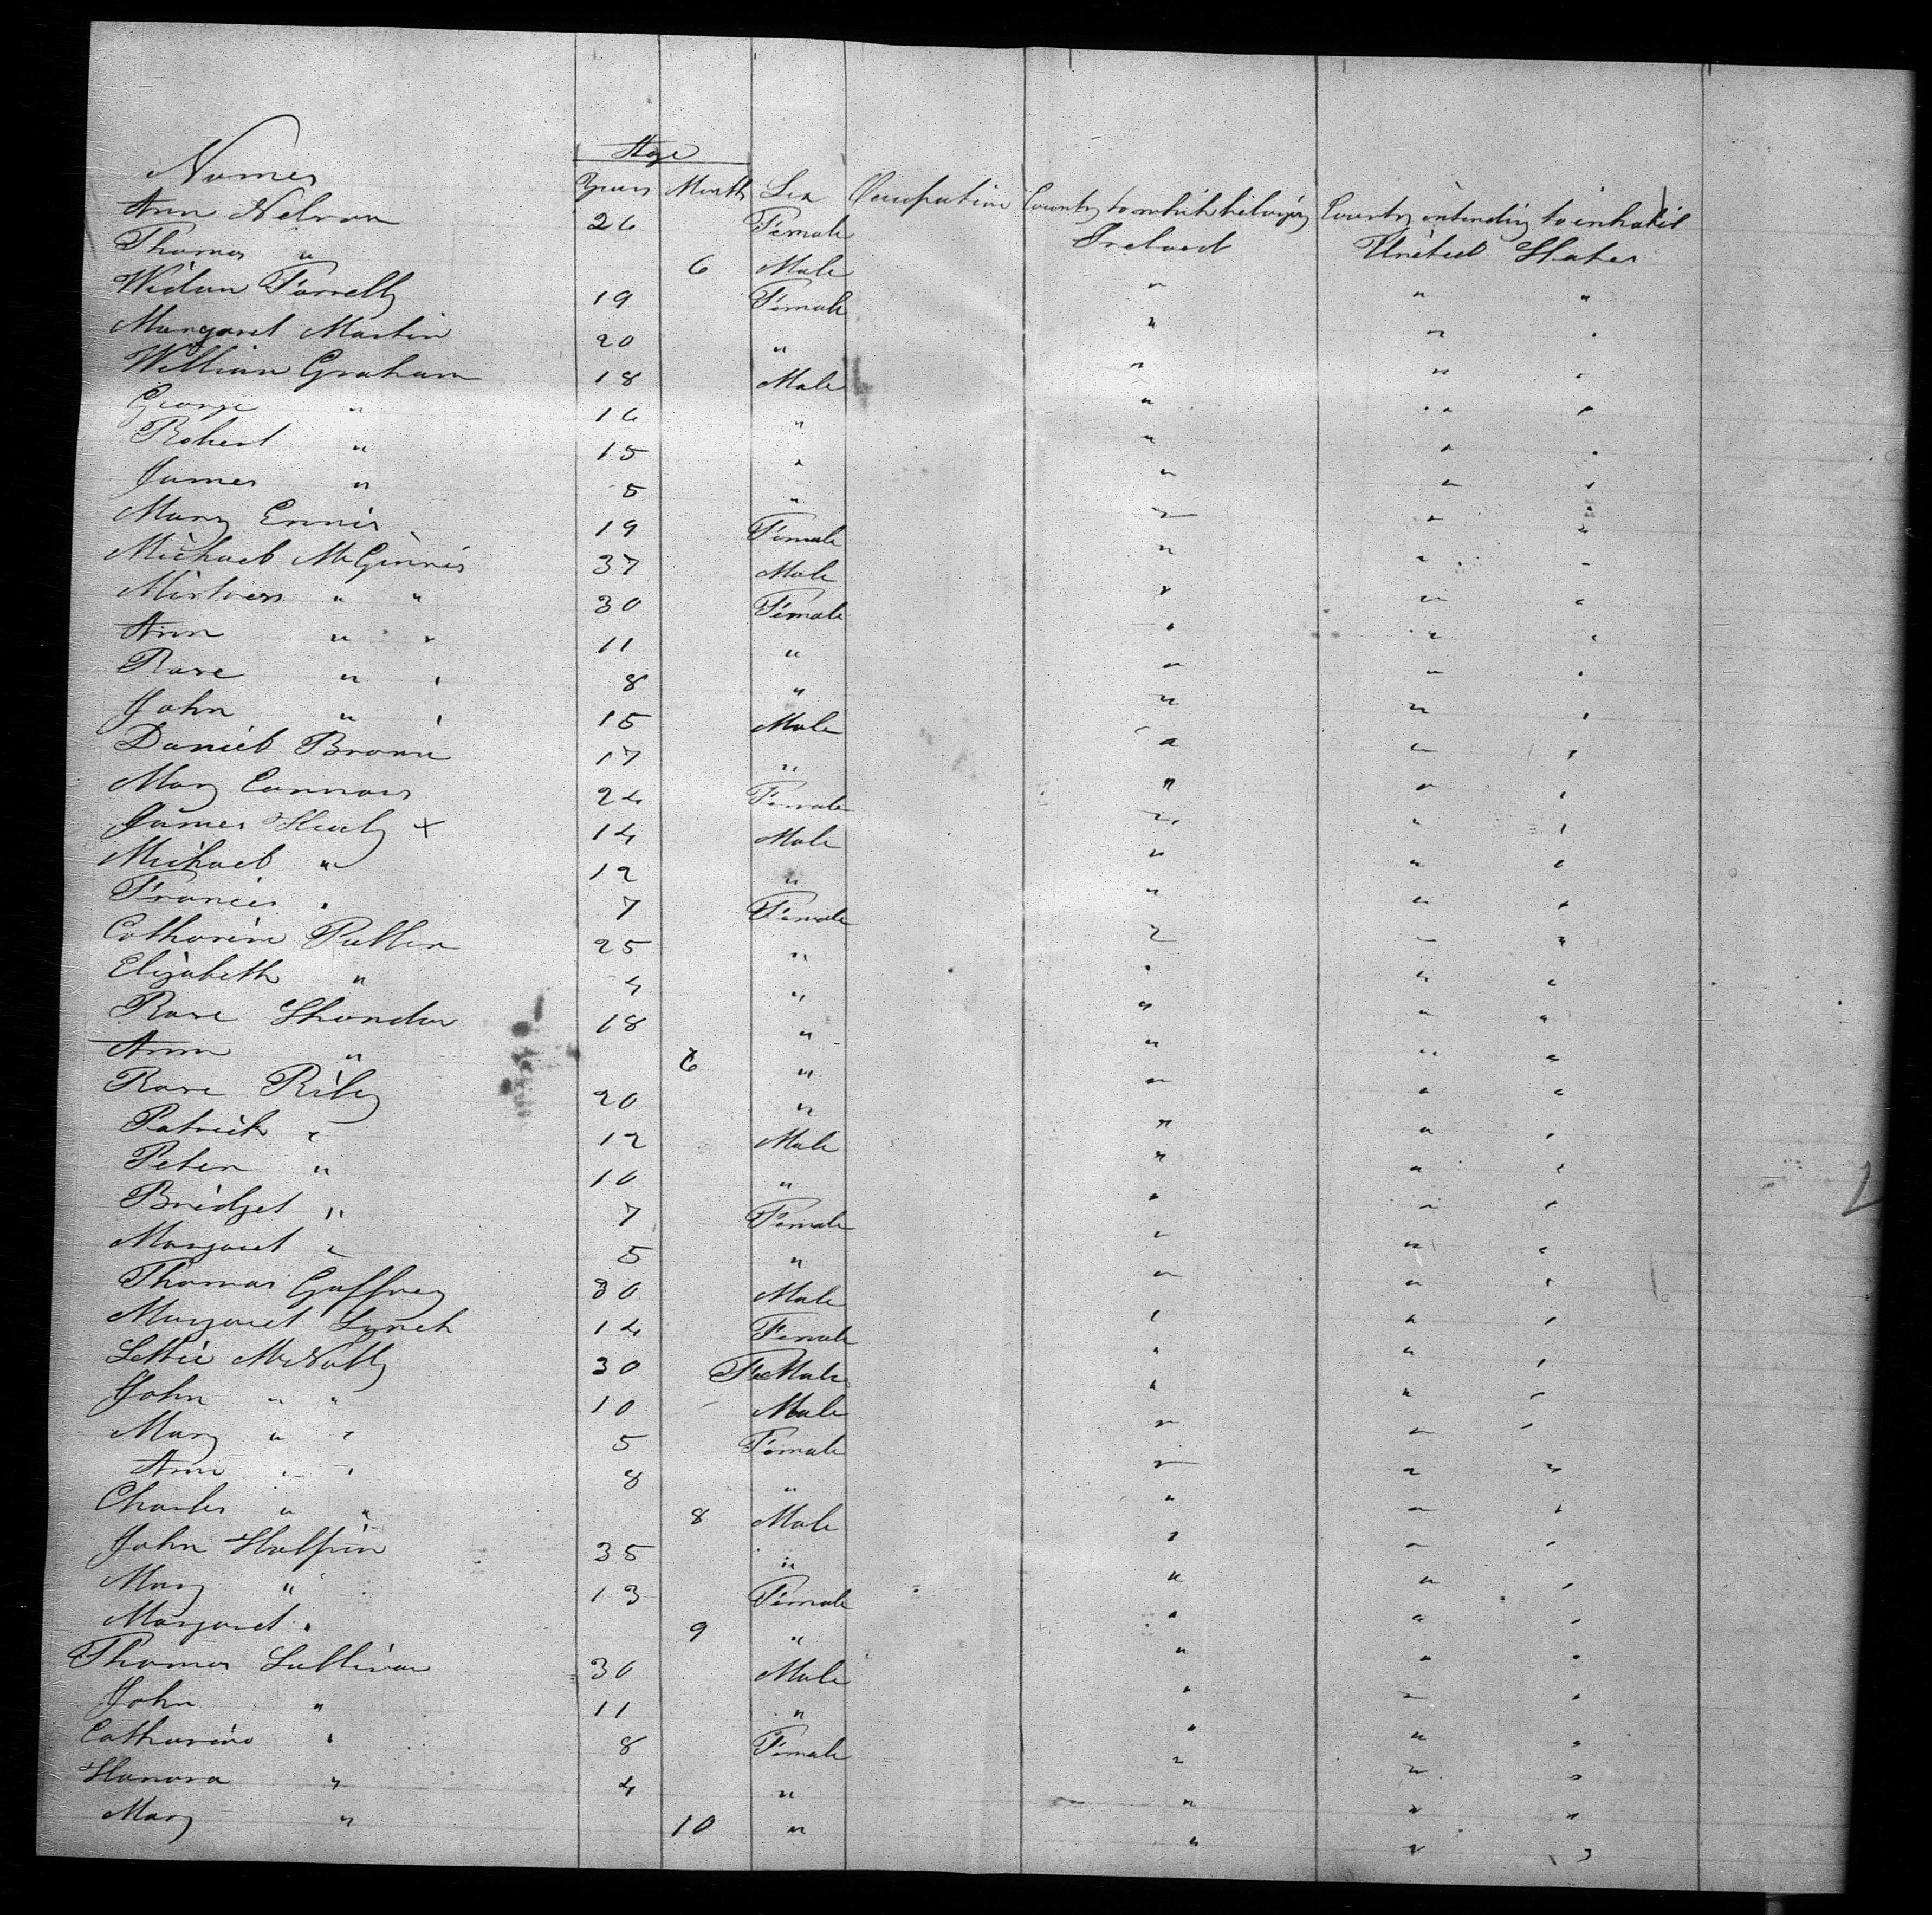 Age
Names Years Month Sex Occupation Country to which belonging Country intending to inhabit
Ann Nelson 26 Female Ireland United States
Thomas " 6 Male " " "
Widow Farrelly 19 Female " " "
Margaret Martin 20 " " " "
William Graham 18 Male " " "
George " 16 " " " "
Robert " 15 " " " "
James " 5 " " " "
Mary Ennis 19 Female " " "
Michael McGinnis 37 Male " " "
Mistress " " 30 Female " " "
Ann " " 11 " " " "
Rose " " 8 " " " "
John " " 15 Male " " "
Daniel Brown 17 " " " "
Mary Connors 24 Female " " "
James Healy x 14 Male " " "
Michael " 12 " " " "
Francis " 7 Female " " "
Catharine Pullen 25 " " " "
Elizabeth " 4 " " " "
Rose 18 " " " "
Ann " 6 " " " "
Rose Riley 20 " " " "
Patrick " 12 Male " " "
Peter " 10 " " " "
Bridget " 7 Female " " "
Margaret " 5 " " " "
Thomas Gaffney 30 Male " " "
Margaret Lynch 14 Female " " "
Lettie McNally 30 FeMale " " "
John " " 10 Male " " "
Mary " " 5 Female " " "
Ann " " 8 " " " "
Charles " " 8 Male " " "
John Halpin 35 " " " "
Mary " 13 Female " " "
Margaret " 9 " " " "
Thomas Sullivan 30 Male " " "
John " 11 " " " "
Catharine " 8 Female " " "
Honora " 4 " " " "
Mary " 10 " " " "